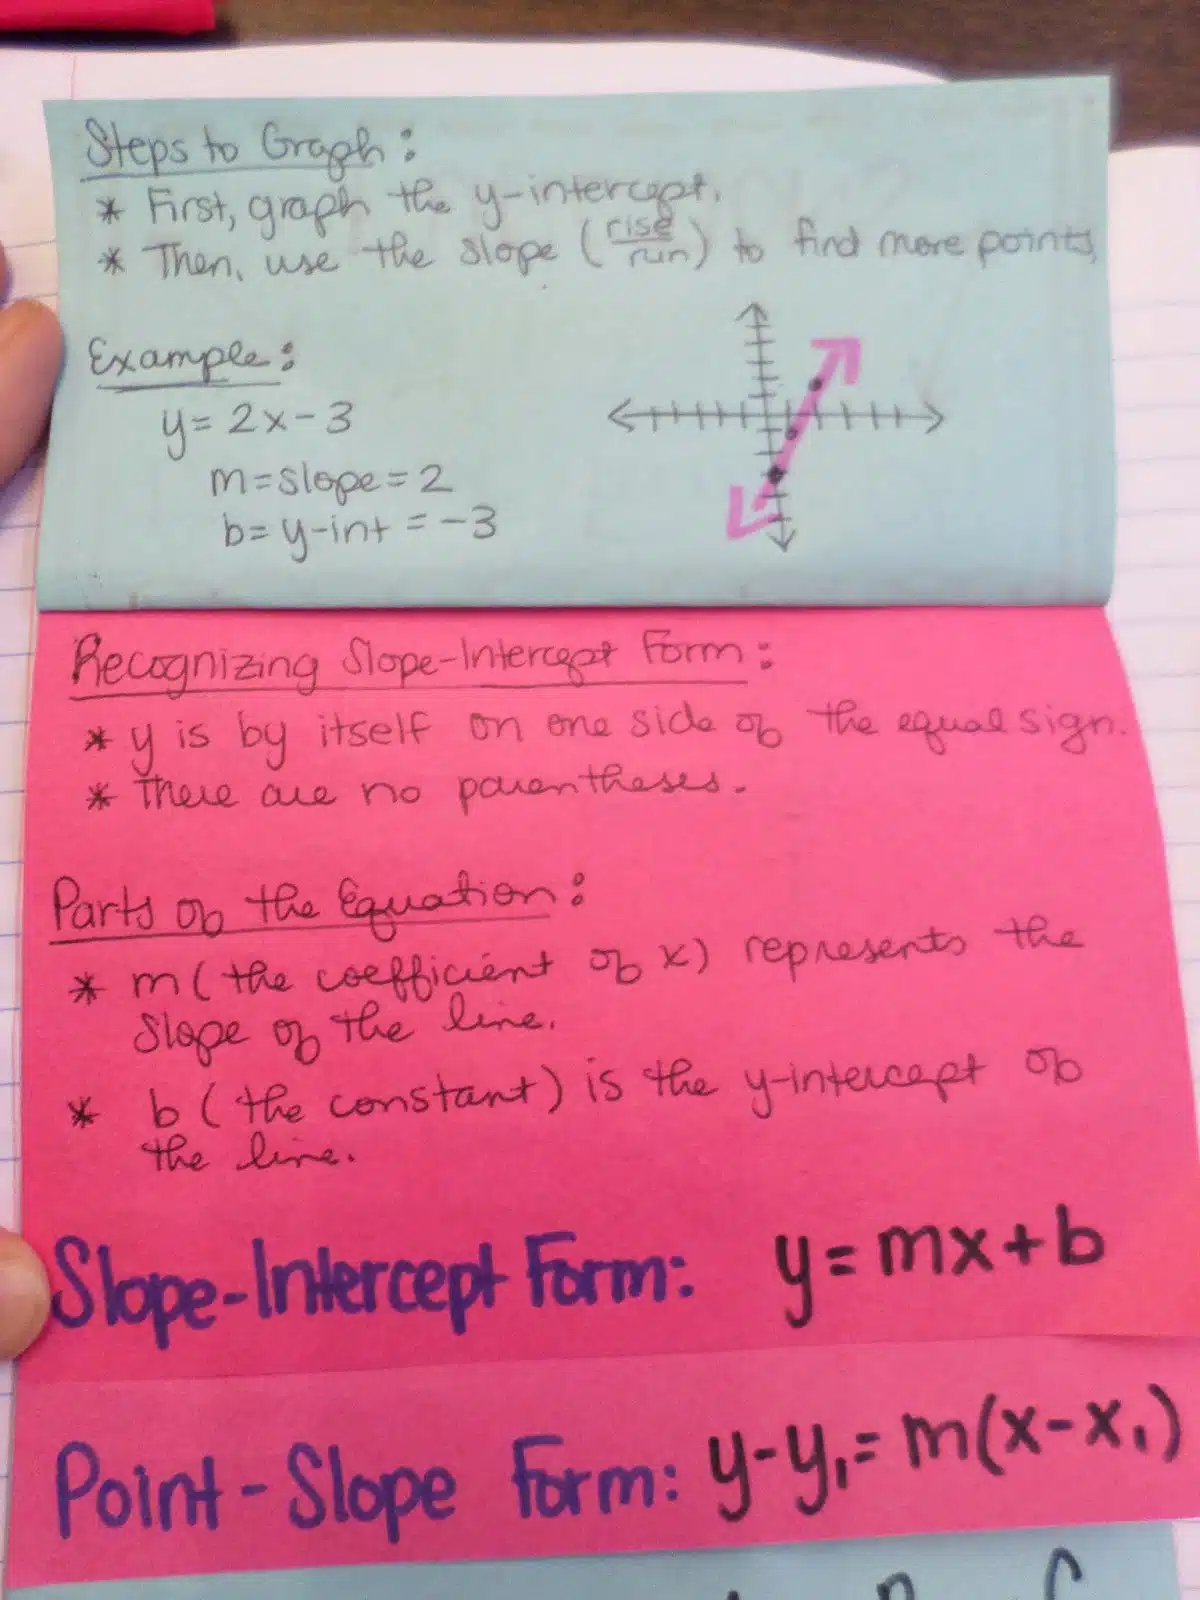 Steps to Graph:
* First, graph the y-intercept.
* Then, use the slope (rise/run) to find more points.
Example:
y = 2x - 3
m = slope = 2
b = y-int = -3
Recognizing Slope-Intercept Form:
* y is by itself on one side of the equal sign.
* There are no parentheses.
Parts of the Equation:
* m (the coefficient of x) represents the
slope of the line.
* b (the constant) is the y-intercept of
the line.
Slope-Intercept Form: y = mx + b
Point-Slope Form: y - y₁ = m(x - x₁)